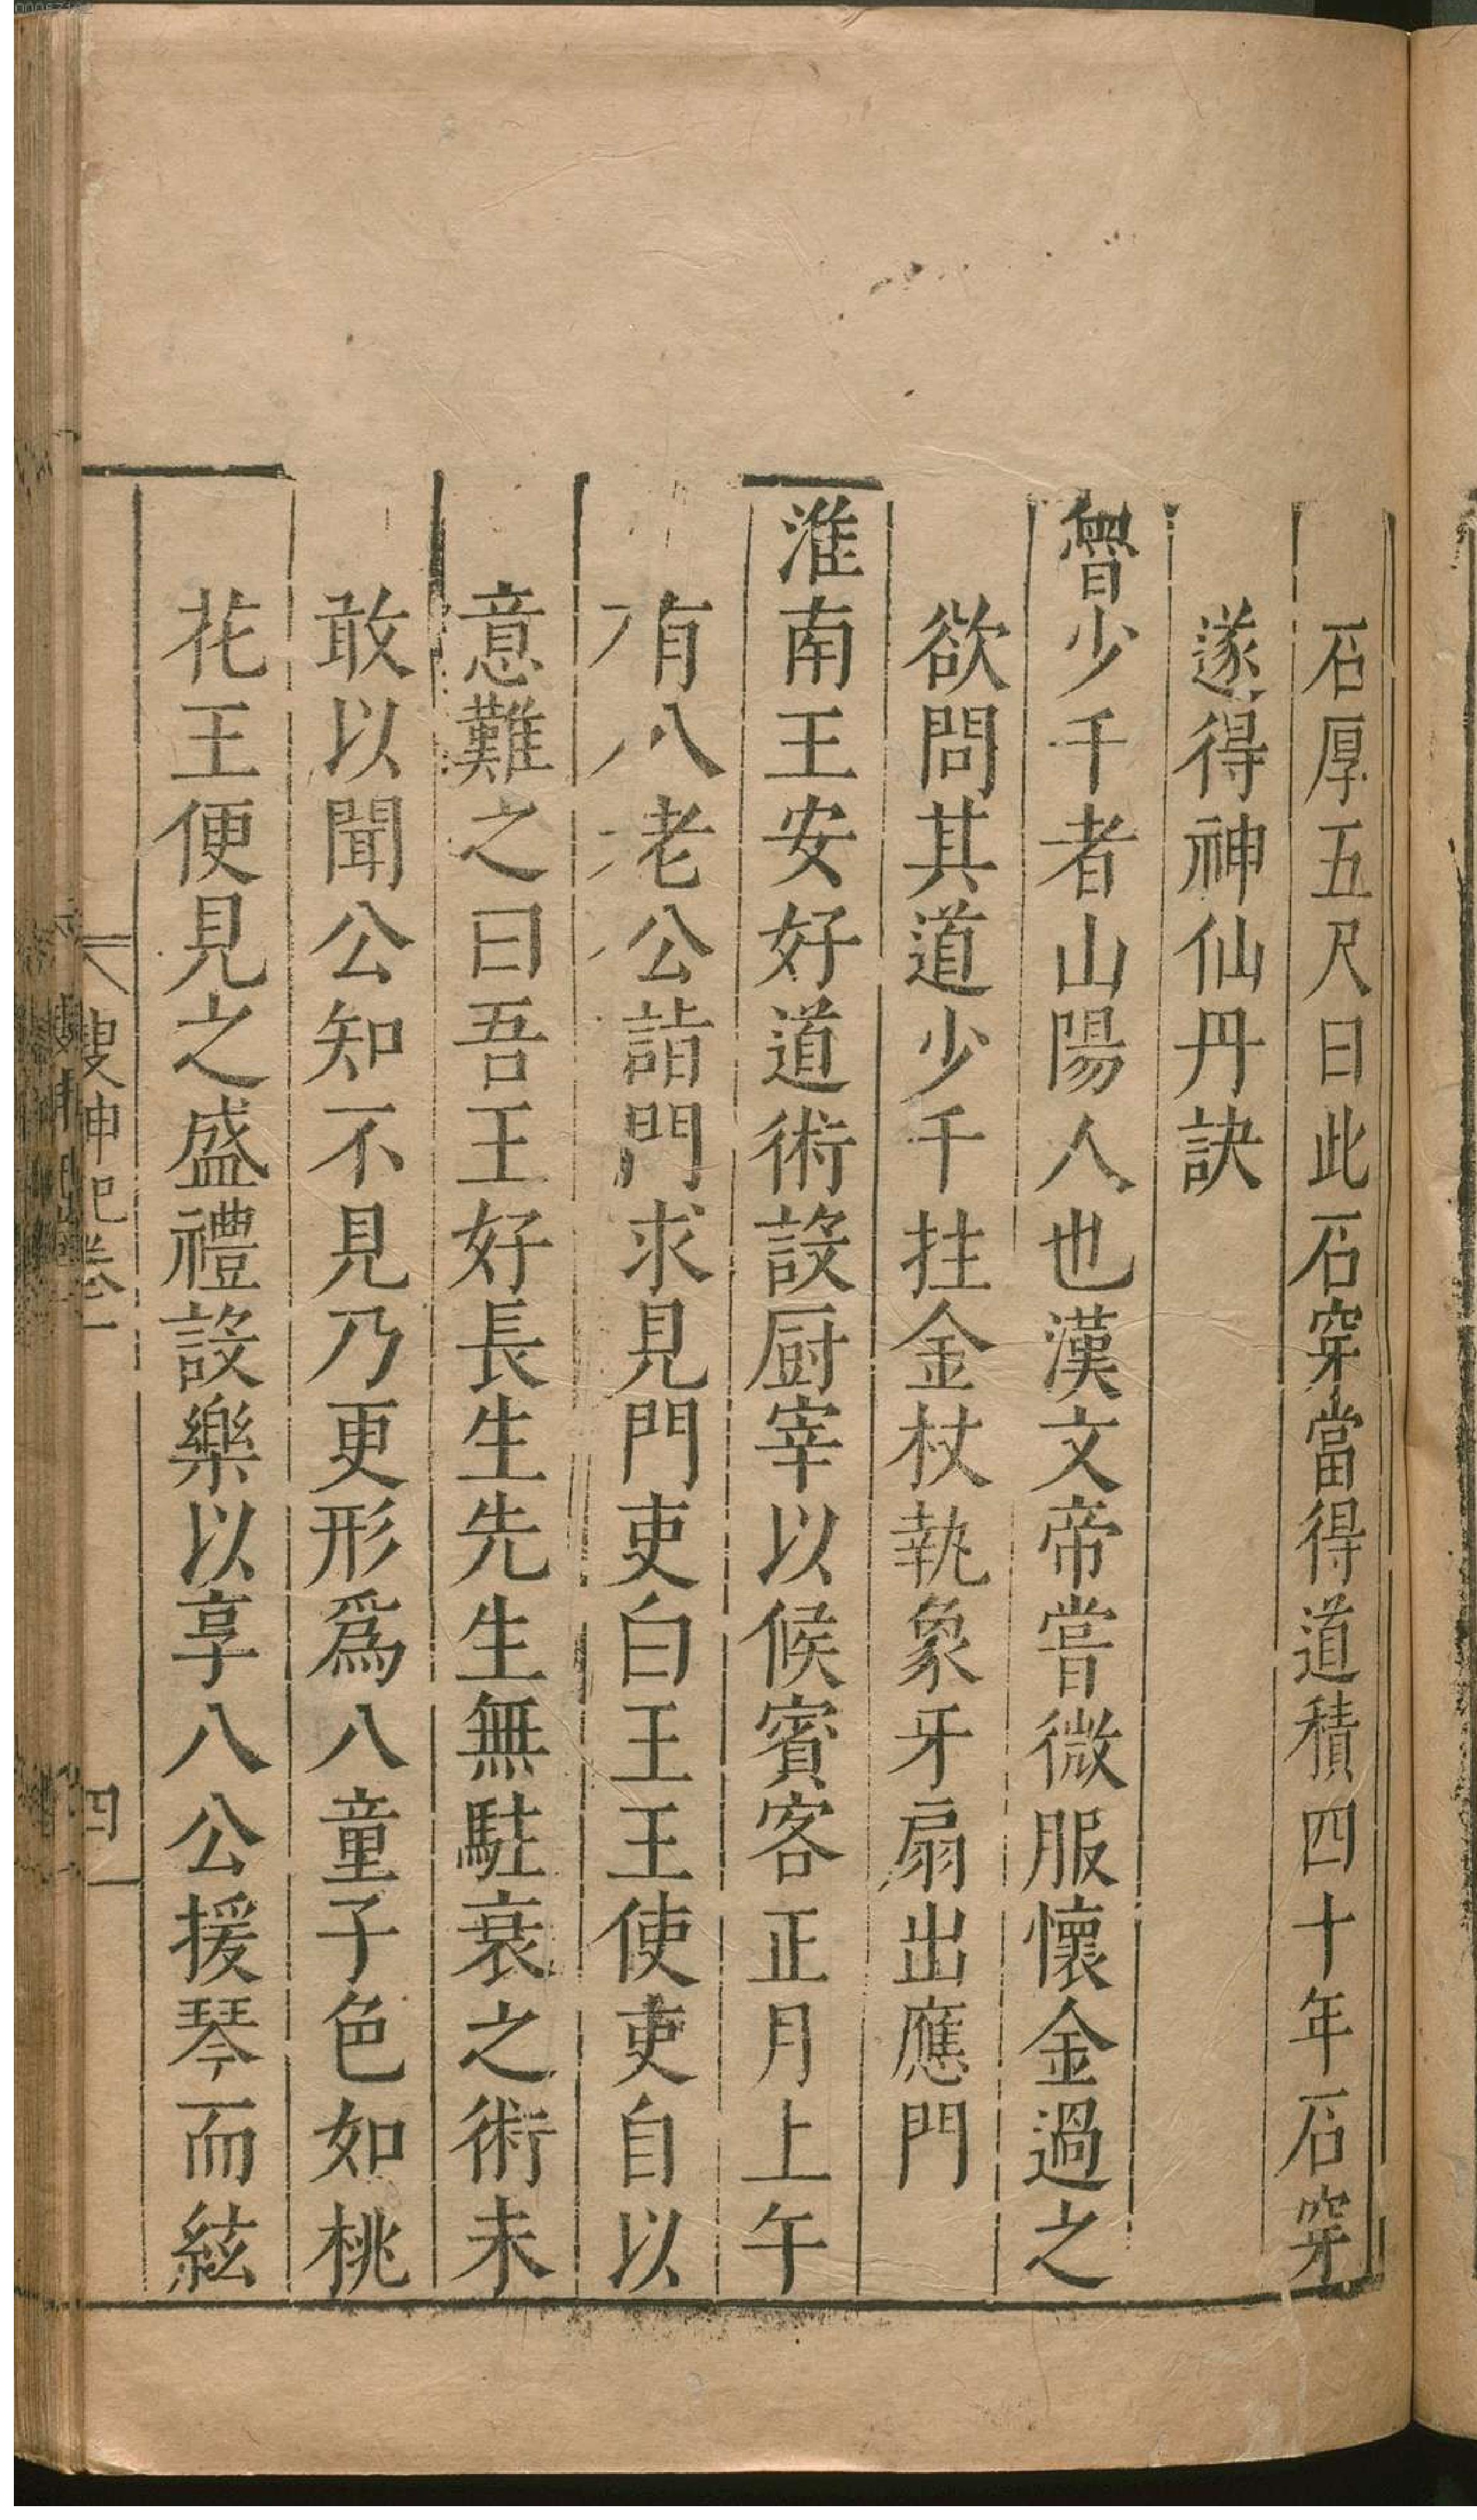 石厚五尺曰此石穿當得道積四十年石穿
遂得神仙丹訣
魯少千者山陽人也漢文帝嘗微服懷金過之
欲問其道少千拄金杖執象牙扇出應門
淮南王安好道術設厨宰以候賓客正月上午
有八老公詣門求見門吏白王王使吏自以
意難之曰吾王好長生先生無駐衰之術未
敢以聞公知不見乃更形爲八童子色如桃
花王便見之盛禮設樂以享八公援琴而絃
搜神記卷一
四